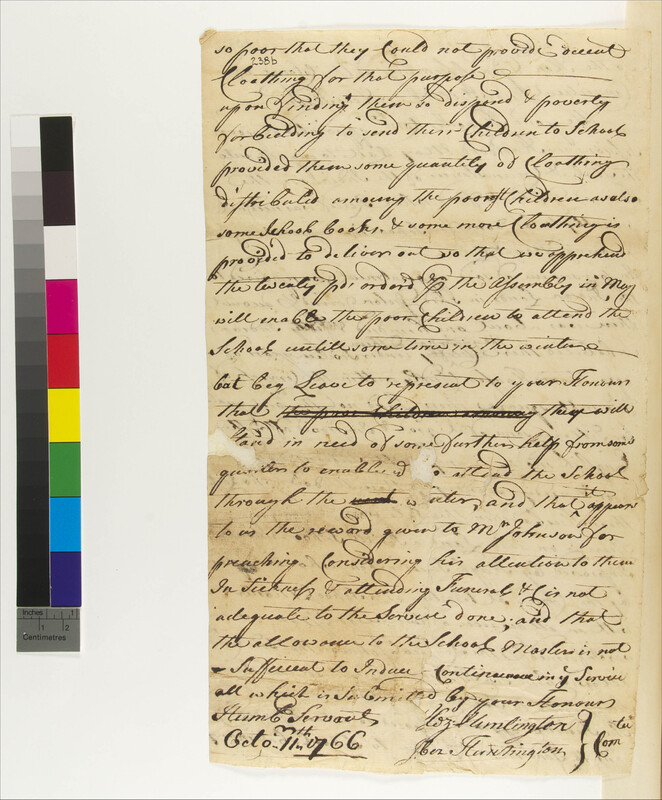 so poor that they Could not provide decent
238b
Cloathing for that purpose
upon finding them so dispend & poverty
forbidding to send their Children to School
provided them some quantity of Cloathing
distributed among the poorest Children as also
some School books, & some more Cloathing is
provided to deliver out so that we apprehend
the twenty pds orderd pr the Assembly in May
will enable the poor Children to attend the
School untill some time in the winter
but beg Leave to represent to your Honours
that the poor Children they will
stand in need of some further help from some
quarter to enable to attend the School
through the winter, and that it appears
to us the reward given to Mr Johnson for
preaching Considering his attention to them
In Sickness & attending Funerals &c is not
adequate to the Service done; and that
the allowance to the School Masters is not
Sufficent to Induce Continuance in ye Service
all which is Submitted by your Honours
Humb Servants
Hez Huntington
Octo 11th 1766
Jber Huntington
Comtee
Inches 1 2
Centimetres